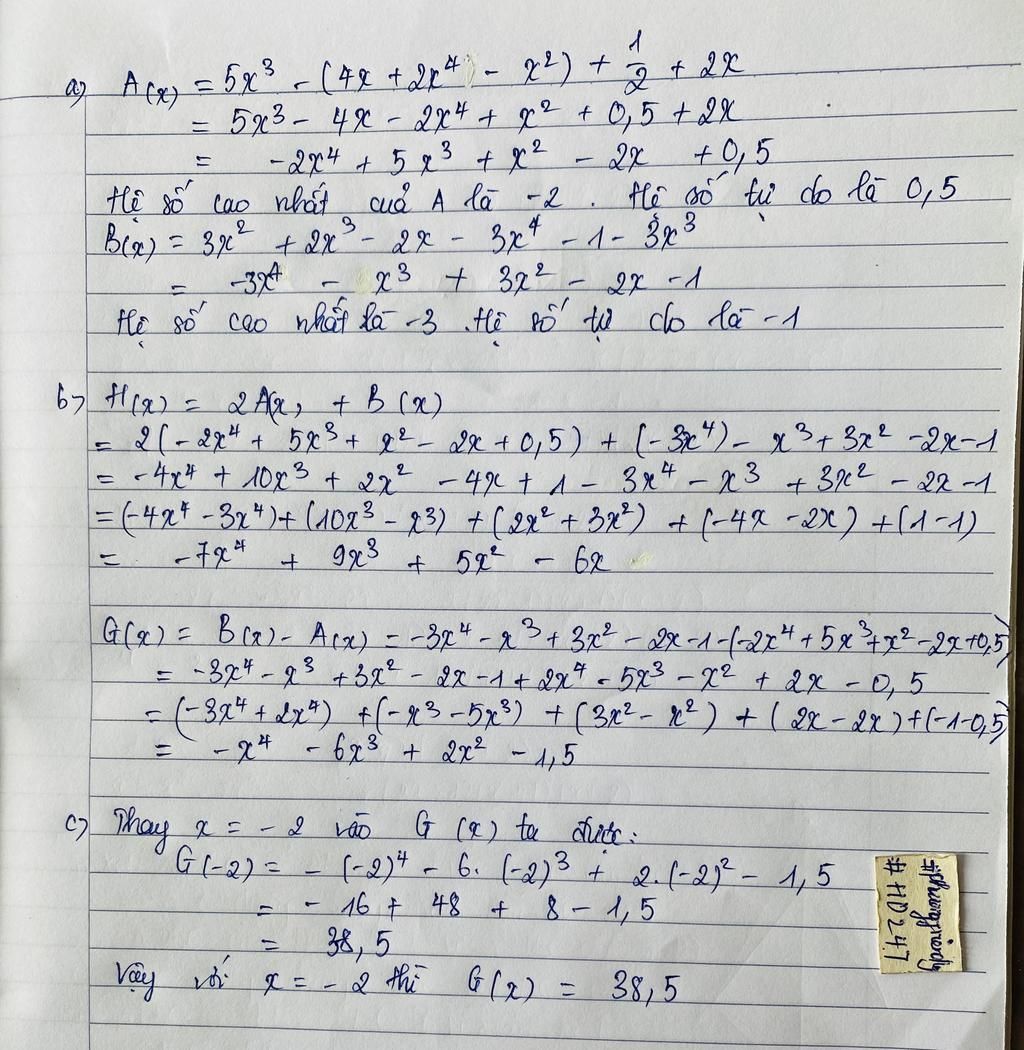 a) A(x) = 5x³ - (4x + 2x⁴ - x²) + 1/2 + 2x
= 5x³ - 4x - 2x⁴ + x² + 0,5 + 2x
= -2x⁴ + 5x³ + x² - 2x + 0,5
Hệ số cao nhất cuả A là -2. Hệ số tự do là 0,5
B(x) = 3x² + 2x³ - 2x - 3x⁴ - 1 - 3x³
= -3x⁴ - x³ + 3x² - 2x - 1
Hệ số cao nhất là -3. Hệ số tự do là -1
b) H(x) = 2A(x) + B(x)
= 2(-2x⁴ + 5x³ + x² - 2x + 0,5) + (-3x⁴) - x³ + 3x² - 2x - 1
= -4x⁴ + 10x³ + 2x² - 4x + 1 - 3x⁴ - x³ + 3x² - 2x - 1
= (-4x⁴ - 3x⁴) + (10x³ - x³) + (2x² + 3x²) + (-4x - 2x) + (1 - 1)
= -7x⁴ + 9x³ + 5x² - 6x
G(x) = B(x) - A(x) = -3x⁴ - x³ + 3x² - 2x - 1 - (-2x⁴ + 5x³ + x² - 2x + 0,5)
= -3x⁴ - x³ + 3x² - 2x - 1 + 2x⁴ - 5x³ - x² + 2x - 0,5
= (-3x⁴ + 2x⁴) + (-x³ - 5x³) + (3x² - x²) + (2x - 2x) + (-1 - 0,5)
= -x⁴ - 6x³ + 2x² - 1,5
c) Thay x = -2 vào G(x) ta được:
G(-2) = -(-2)⁴ - 6.(-2)³ + 2.(-2)² - 1,5
= -16 + 48 + 8 - 1,5
= 38,5
Vậy với x = -2 thì G(x) = 38,5
#HD247